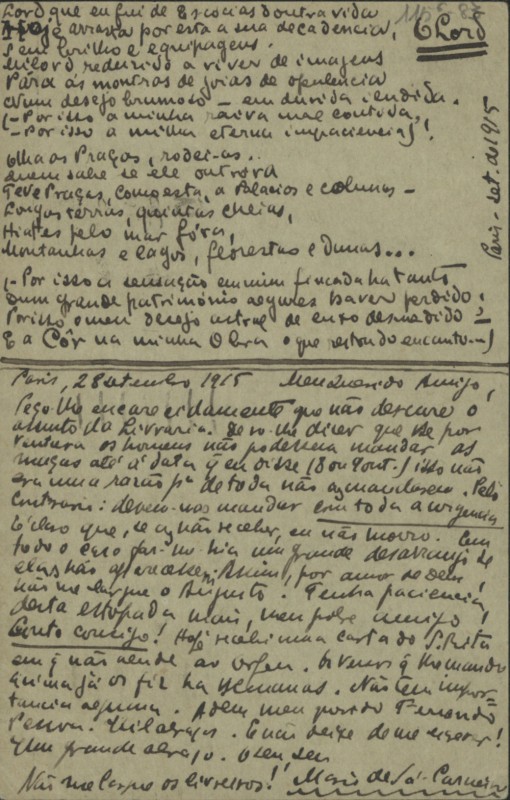 O Lord
Lord que eu fui de Escocias doutra vida
Hoje arrasta por esta a sua decadencia,
Sem brilho e equipagens.
Milord reduzido a viver de imagens
Pára ás montras de joias de opulencia
Num desejo brumoso — em duvida iludida.
(— Por isso a minha raiva mal contida,
— Por isso a minha eterna impaciencia)!
Olha as Praças, rodeia-as..
Quem sabe se ele outrora
Teve Praças, como esta, a Palacios e colunas —
Longas terras, quintas cheias,
Hiates pelo mar fóra,
Montanhas e lagos, florestas e dunas...
(— Por isso a sensação em mim fincada ha tanto
Dum grande patrimonio algures haver perdido;
Por isso o meu desejo astral de luxo desmedido —
E a Côr na minha Obra o que restou do encanto...)
Paris - set. de 1915
Paris, 28 setembro 1915 Meu Querido Amigo,
Peço-lhe encarecidamente que não descure o
assunto da Livraria. Devo-lhe dizer que se por
ventura os homens não poderem mandar as
massas até á data q eu disse (8 ou 9 out.) isso não
era uma razão pª de todo não as mandarem. Pelo
contrario: devem-nos mandar com toda a urgencia
É claro que, se as não receber, eu não morro. Em
todo o caso far-me-hia um grande desarranjo se
elas não aparecessem. Assim, por amor de deus,
não me largue o Augusto. Tenha paciencia,
desta estopada mais, meu pobre amigo!
Conto comsigo! Hoje recebi uma carta do S. Rita
em q não vende ao orfeu. Os versos q lhe mando
acima já os fiz ha semanas. Não têm impor-
tancia alguma. Adeus meu querido Fernando
Pessoa. Mil abraços. E não deixe de me escrever!
Um grande abraço. O seu, seu
Não me largue os livreiros! Mario de Sá-Carneiro